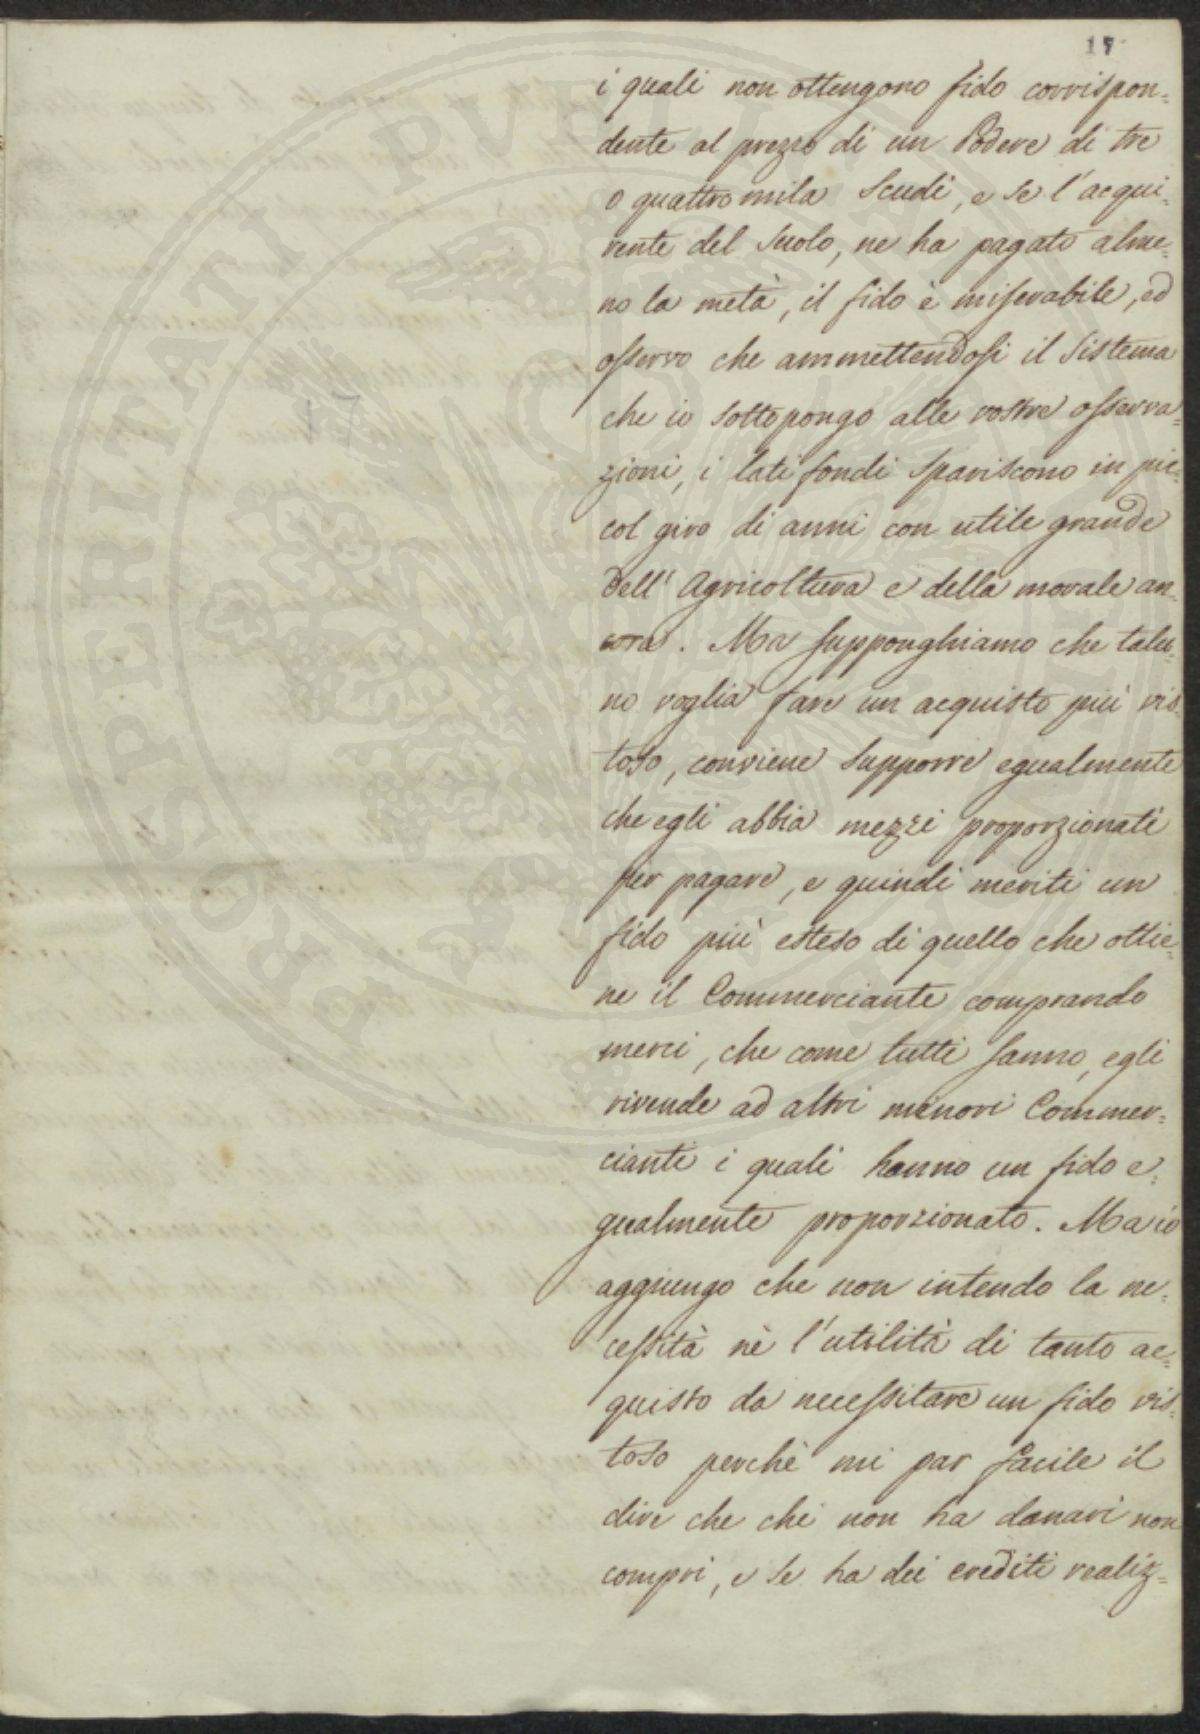 17
i quali non ottengono fido corrispon=
dente al prezzo di un Podere di tre
o quattro mila Scudi, e se l'acqui=
rente del Suolo, ne ha pagato alme=
no la metà, il fido è miserabile, ed
osservo che ammettendosi il Sistema
che io sottopongo alle vostre osserva=
zioni, i latifondi spariscono in pic=
col giro di anni con utile grande
dell'Agricoltura e della morale an=
cora. Ma supponghiamo che talu=
no voglia fare un acquisto più vis=
toso, conviene supporre egualmente
che egli abbia mezzi proporzionati
per pagare, e quindi meriti un
fido più esteso di quello che ottie=
ne il Commerciante comprando
merci, che come tutti sanno, egli
rivende ad altri minori Commer=
cianti i quali hanno un fido e=
gualmente proporzionato. Ma io
aggiungo che non intendo la ne=
cessità nè l'utilità di tanto ac=
quisto da necessitare un fido vis=
toso perchè mi par facile il
dire che chi non ha danari non
compri, e se ha dei crediti realiz=
17
PROSPERITATI PUBLICAE